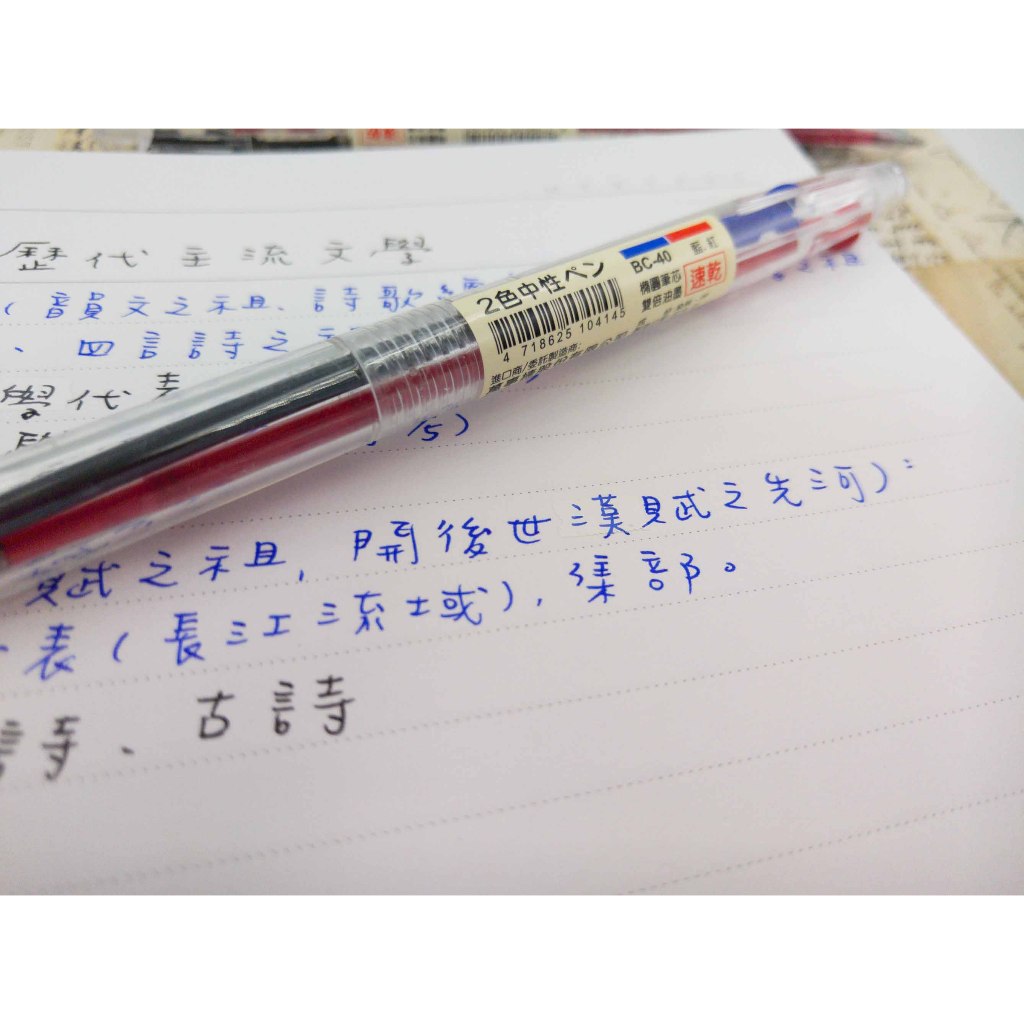 歷代主流文學
(韻文之祖、詩歌
、四言詩之
學代表
/5)
賦之祖,開後世漢賦之先河):
表(長江流域),集部。
詩、古詩
2色中性ペン
4 718625 104145
進口商/委託製造商:
BC-40
藍.紅
橢圓筆芯
雙倍油墨
速乾
之祖